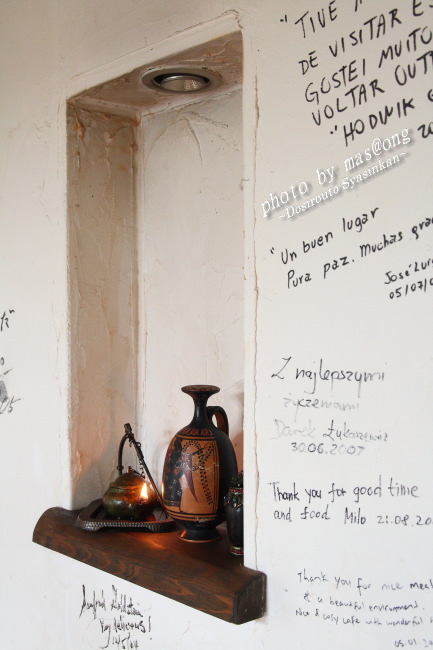 "TIVE
DE VISITAR
GOSTEI MUITO
VOLTAR
"HODINIK
photo by mas@ong
~Dosirouto Syasinkan~
"Un buen lugar
Pura paz. Muchas
José Luis
05/07/0
Z najlepszymi
życzeniami
Darek
30.06.2007
Thank you for good time
and food Milo 21.08.20
Thank you for nice meal
& a beautiful environment.
Nice & cosy cafe with wonderful
05.01